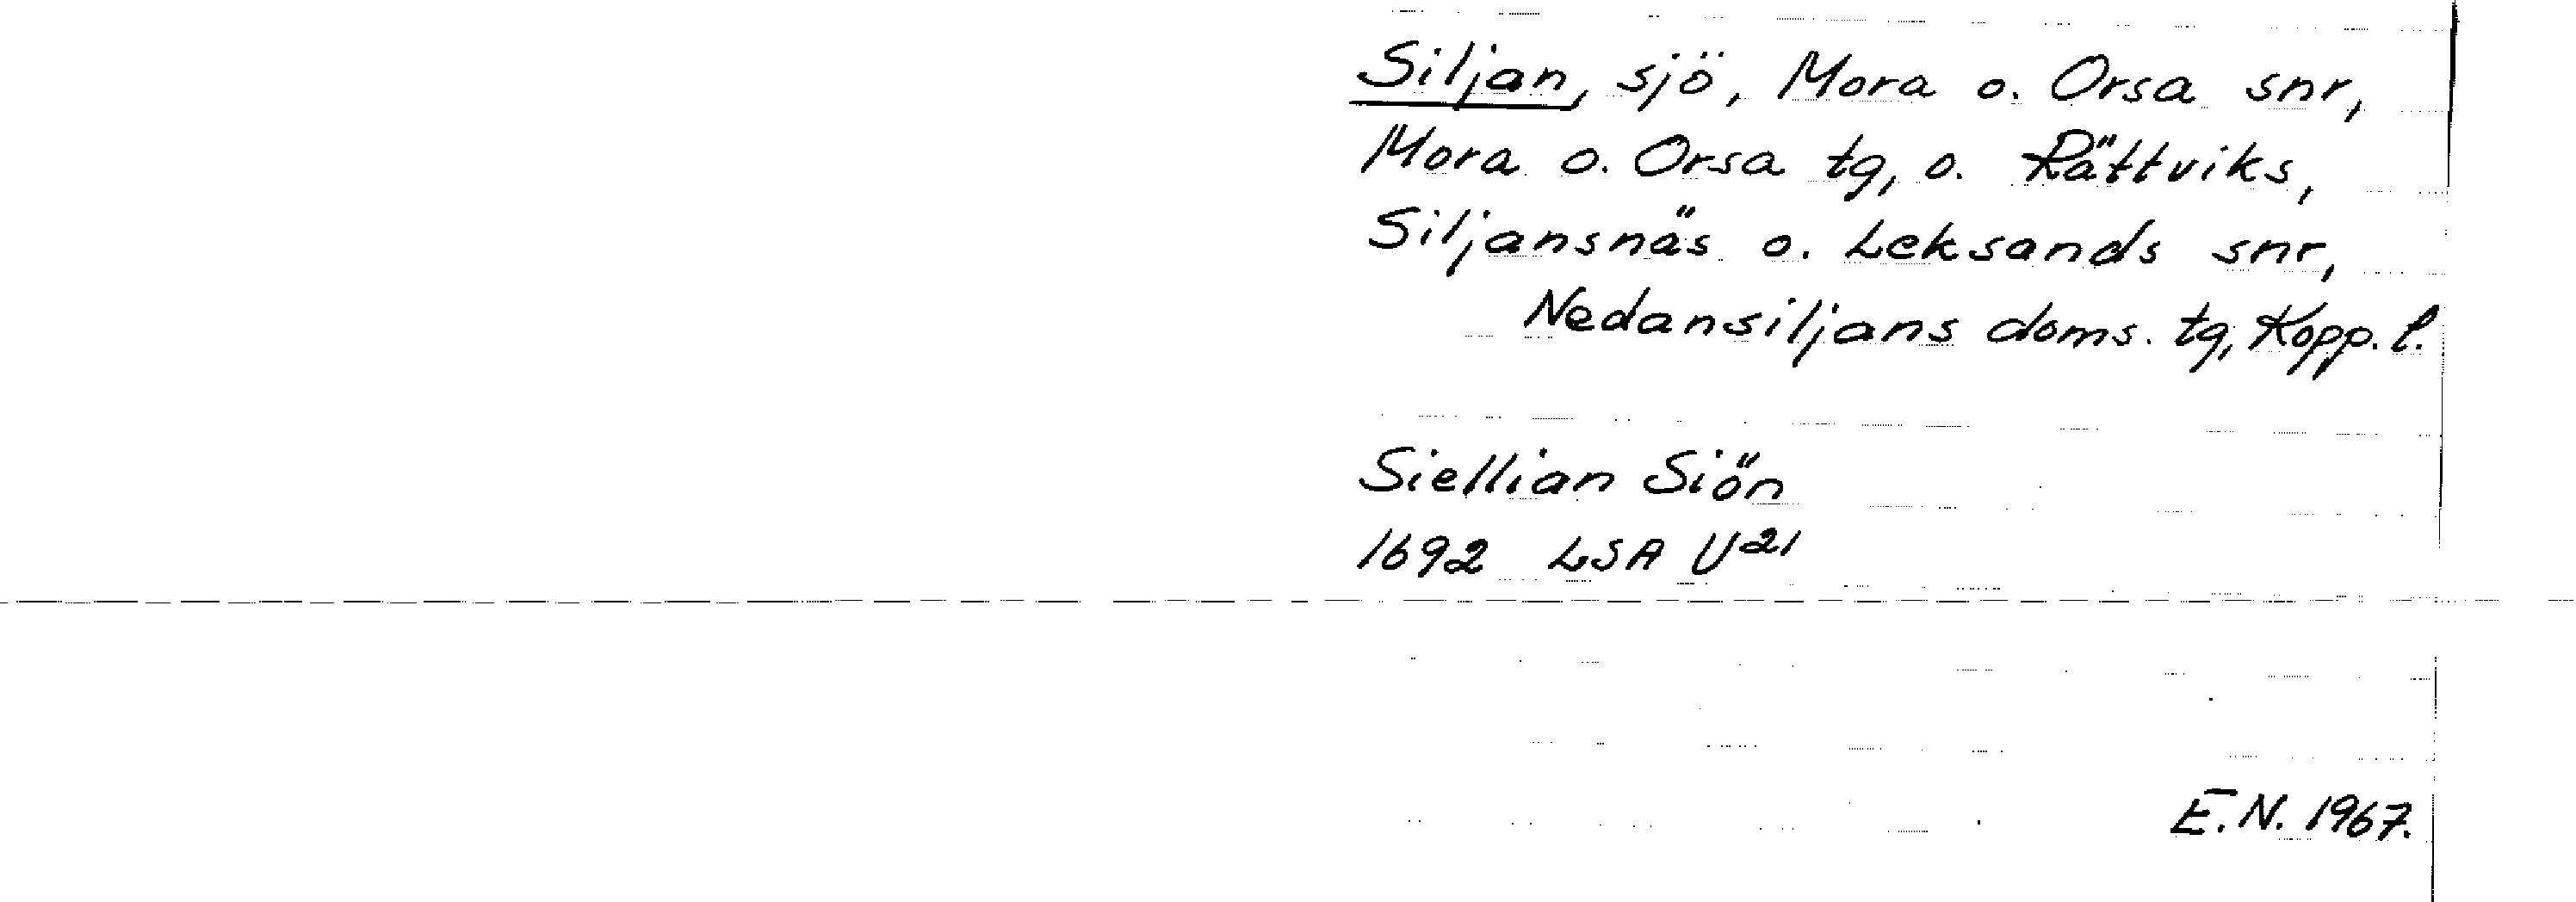 Siljan, sjö, Mora o. Orsa snr,
Mora o. Orsa tg, o. Rättviks,
Siljansnäs o. Leksands snr,
Nedansiljans doms. tg, Kopp. l.
Siellian Siön
1692 LSA U21
E.N. 1967.